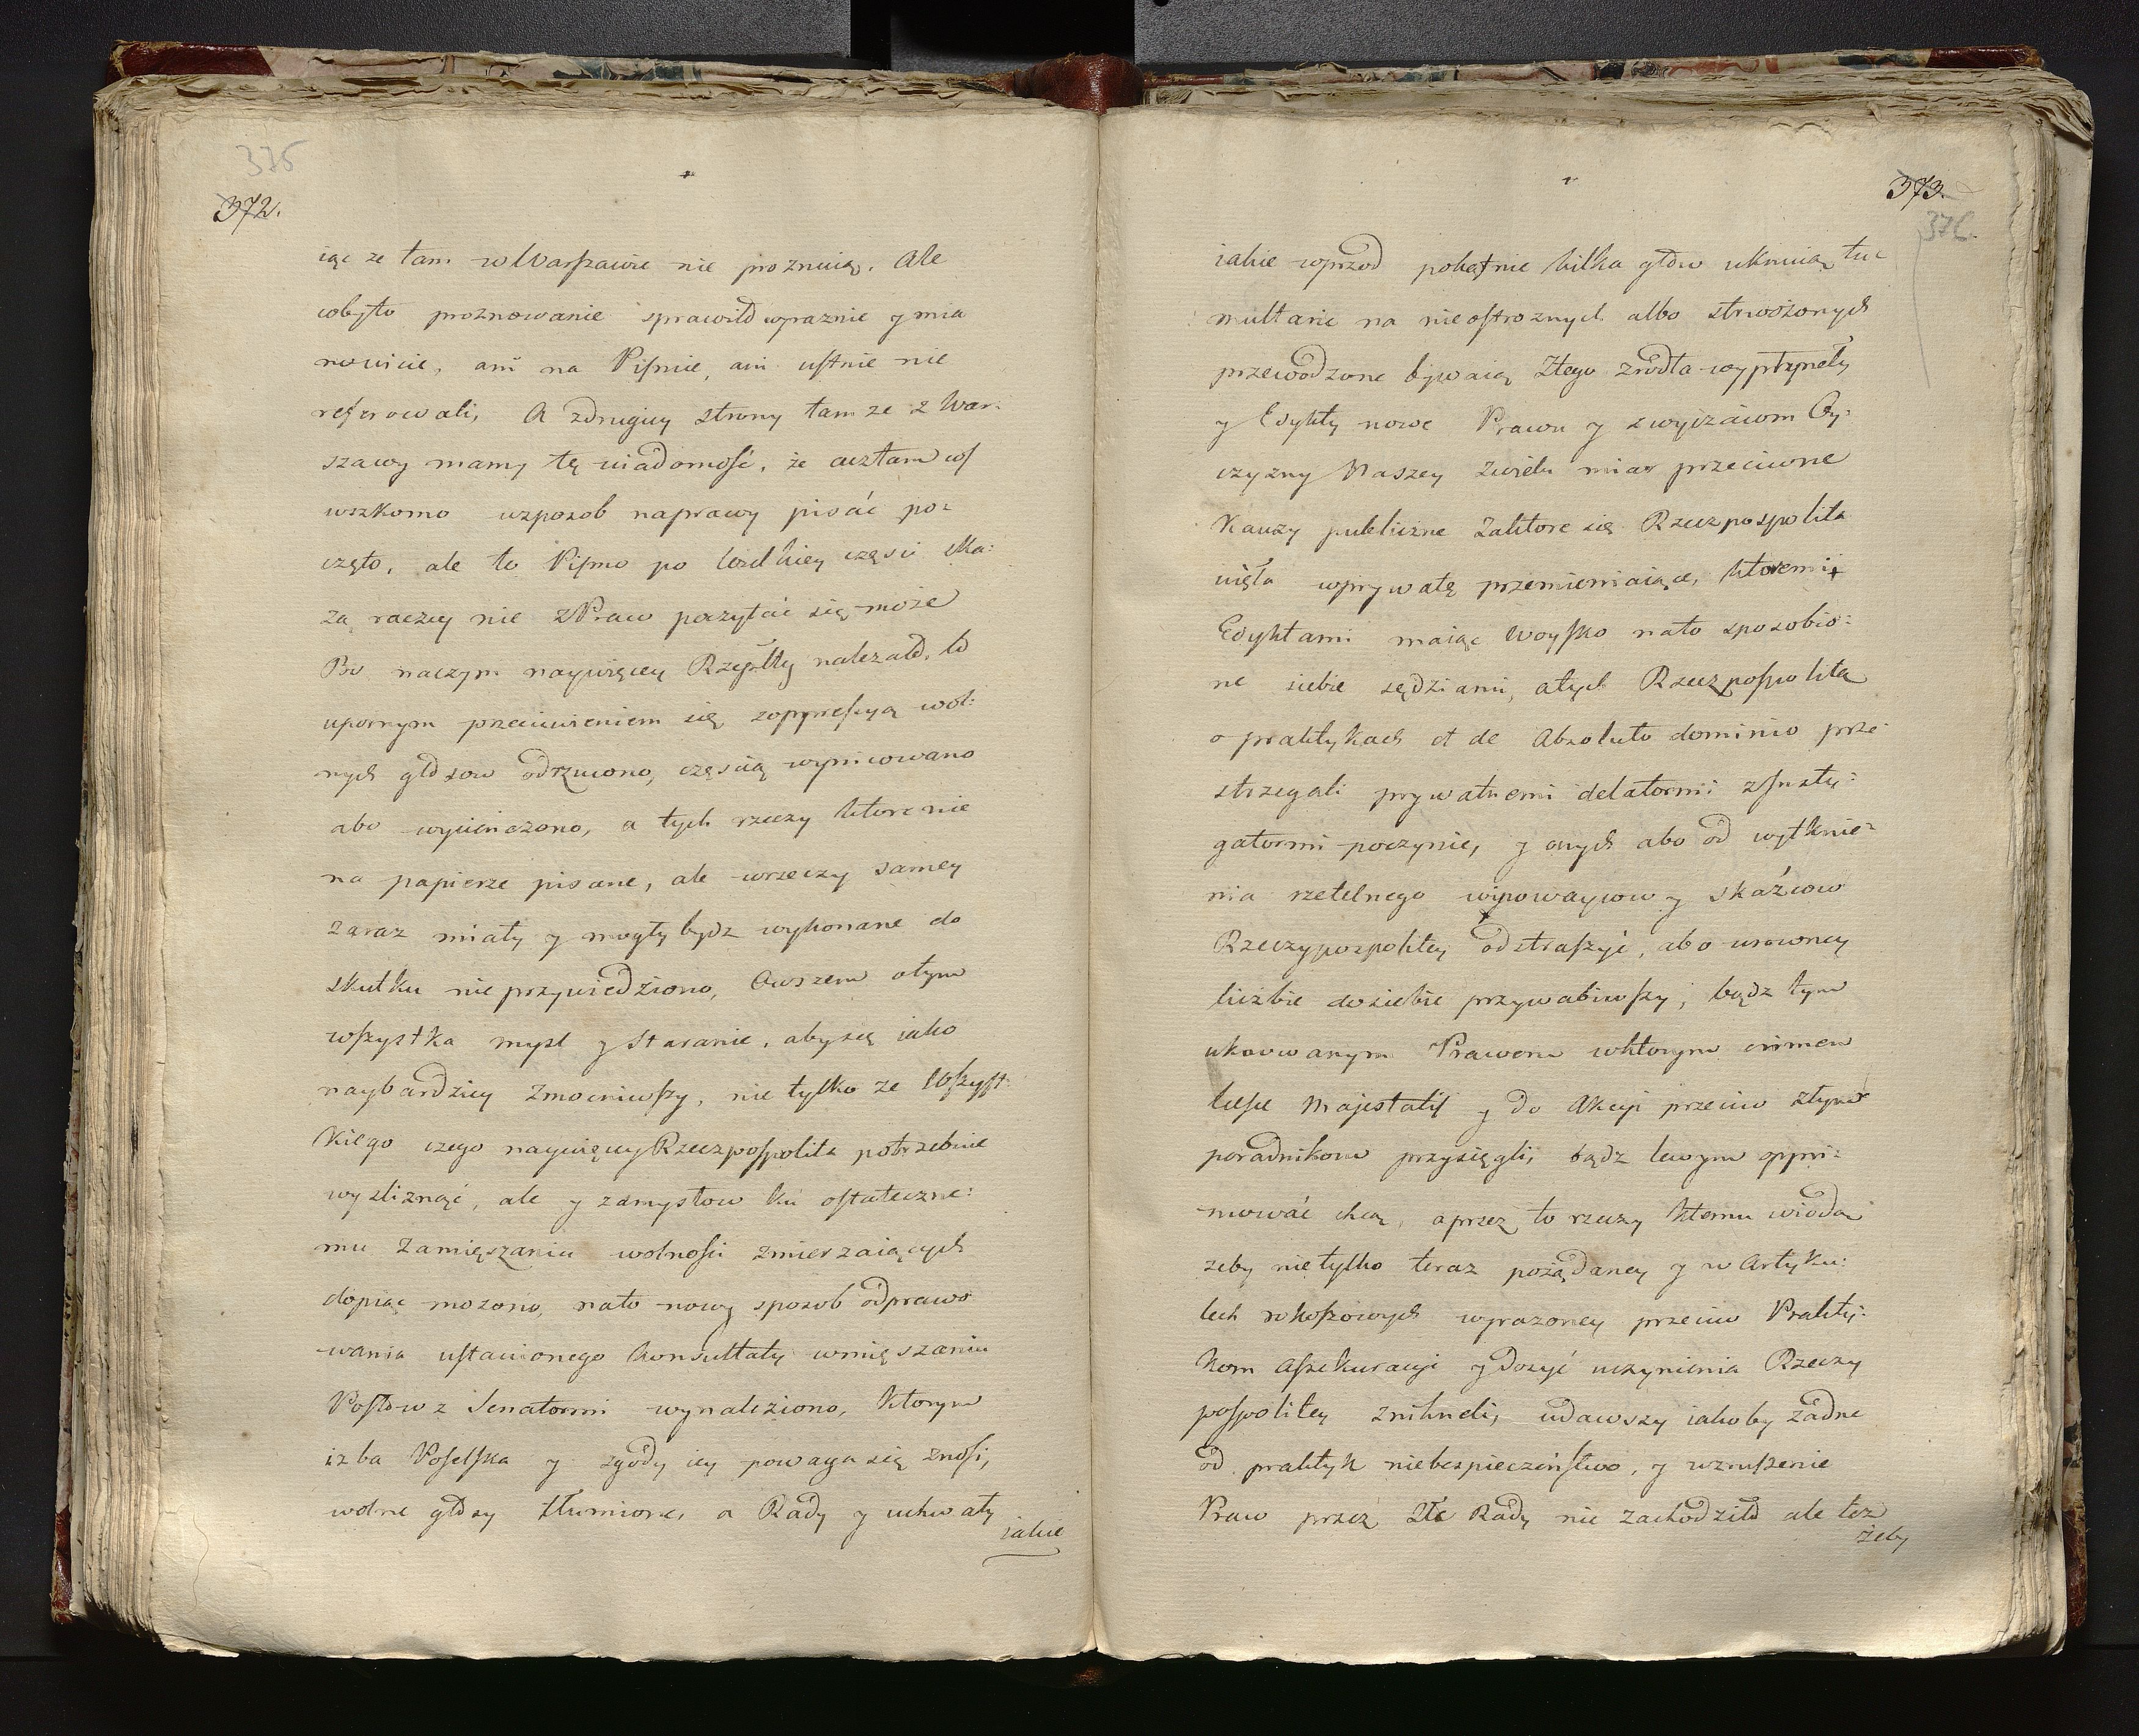 375
372.
iąc ze tam w Warszawie nie proznuią. Ale
coby to proznowanie sprawiło wyraznie y mia
nowicie, ani na Piſmie, ani uſtnie nie
referowali, A zdrugiey strony tam ze z War:
szawy mamy tę wiadomoſć, że acz tam cos
wszkomo wzposob naprawy pisać po:
częto, ale to Piſmo po wielkiey części ska:
zą raczey nie z Praw poczytać się może
Bo naczym naywięcey Rzepltey należało, to
upornym przeciwieniem się zoppreſsyą wol:
nych głosow odrzucono, częscią wynicowano
abo wycieńczono, a tych rzeczy ktore nie
na papierze pisane, ale w rzeczy samey
zaraz miały y mogły bydz wykonane do
skutku nie przywiedziono, Owszem o tym
wſzystka mysl y staranie, aby się iako
naybardziey zmocniwſzy, nie tylko ze Wſzyſt
kiego czego naywięcey Rzeczpoſpolita potrzebuie
wysliznąć, ale y zamysłow ku oſtateczne:
mu Zamięszaniu wolnoſci zmierzaiących
dopiąc mozono, nato nowy sposob odprawo
wania uſtawionego Konsultaty wmięszaniu
Poſłow z Senatormi wynaleziono, Ktorym
izba Poſelſka y zgody iey powaga się znoſi,
wolne głosy tłumione, a Rady y uchwały
iakie
373.
376.
iakie wprzod pokątnie kilka głow uknuią tu:
multarie na nieoſtroznych albo strwożonych
przewodzone bywaią Ztego zrodła wypłynęły
y Edykty nowe Prawu y zwyczaiom Oy:
czyzny Naszey zwielu miar przeciwne
Kauzy publiczne zaktore się Rzeczpospolita
uięła wprywatę przemieniaiące, ktoremi
Edyktami maiąc Woyſko nato sposobio:
ne siebie sędziami, atych Rzeczpoſpolitą
o praktykach et de Absoluto dominio prze
strzegali prywatnemi delatormi zInsty:
gatormi poczynię, y onych abo od wytknie:
nia rzetelnego wipowaycow y skaźcow
Rzeczypospolitey odstraſzyć, abo wrowney
liczbie dosiebie przywabiwſzy, bądz tym
ukowanym Prawem wktorym crimen
læſæ Majestatiſ y do Akcyi przeciw złym
poradnikom przysięgli, bądz lewym oppri:
mować chcą, aprzez to rzeczy ktemu wiodą
zeby nie tylko teraz pożądaney y w Artyku:
lech rokoſzowych wyrazoney przeciw Prakty:
kom Aſsekuracyi y dosyć uczynienia Rzeczy
poſpolitey znikneli, udawszy iakoby żadne
od praktyk niebeſpieczeńſtwo, y wzruſzenie
Praw przez złe Rady nie zachodziło ale też
żeby